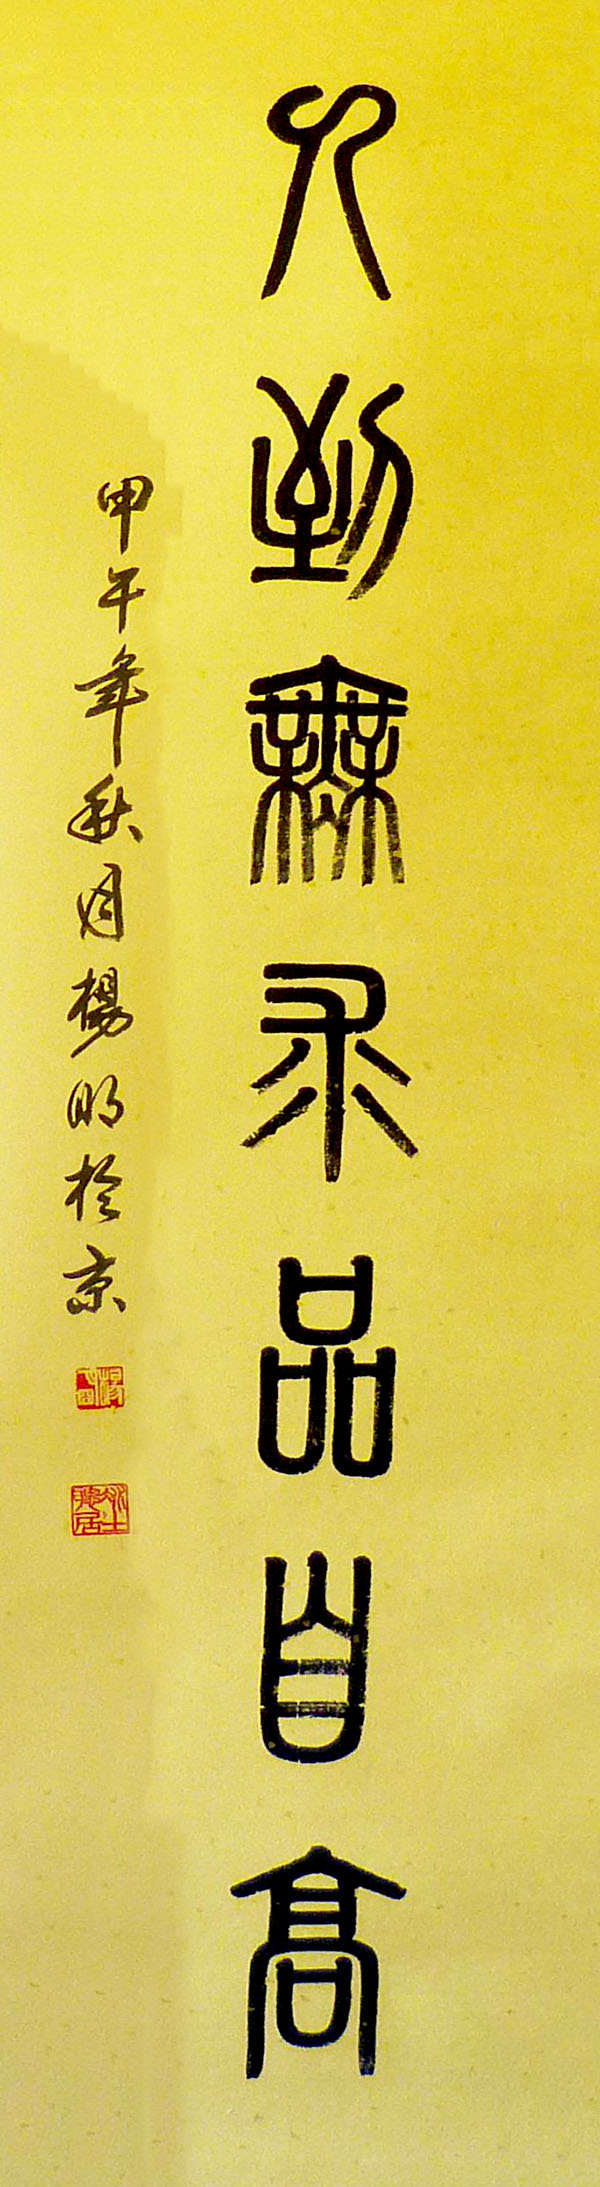 人到無求品自高
甲午年秋月楊明於京